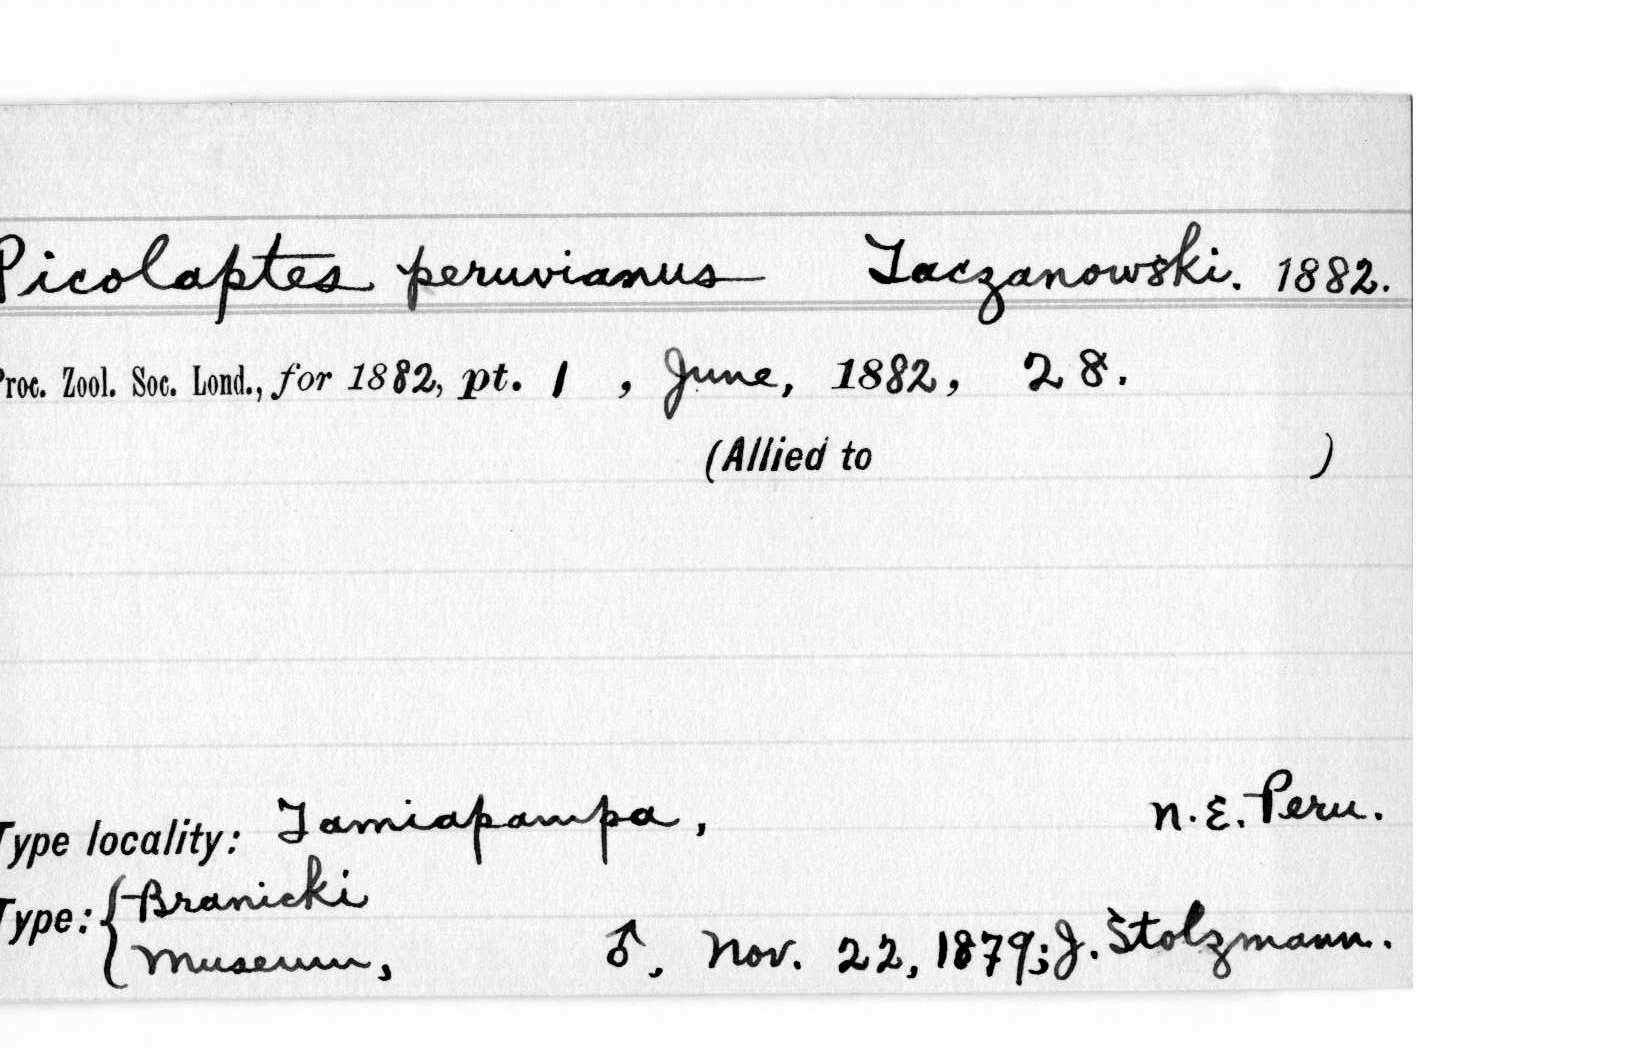 Picolaptes peruvianus Taczanowski. 1882.
Proc. Zool. Soc. Lond., for 1882, pt. 1, June, 1882, 28.
(Allied to )
Type locality: Tamiapampa, N.E. Peru.
Type: { Branicki
Museum, ♂, Nov. 22, 1879; J. Stolzmann.